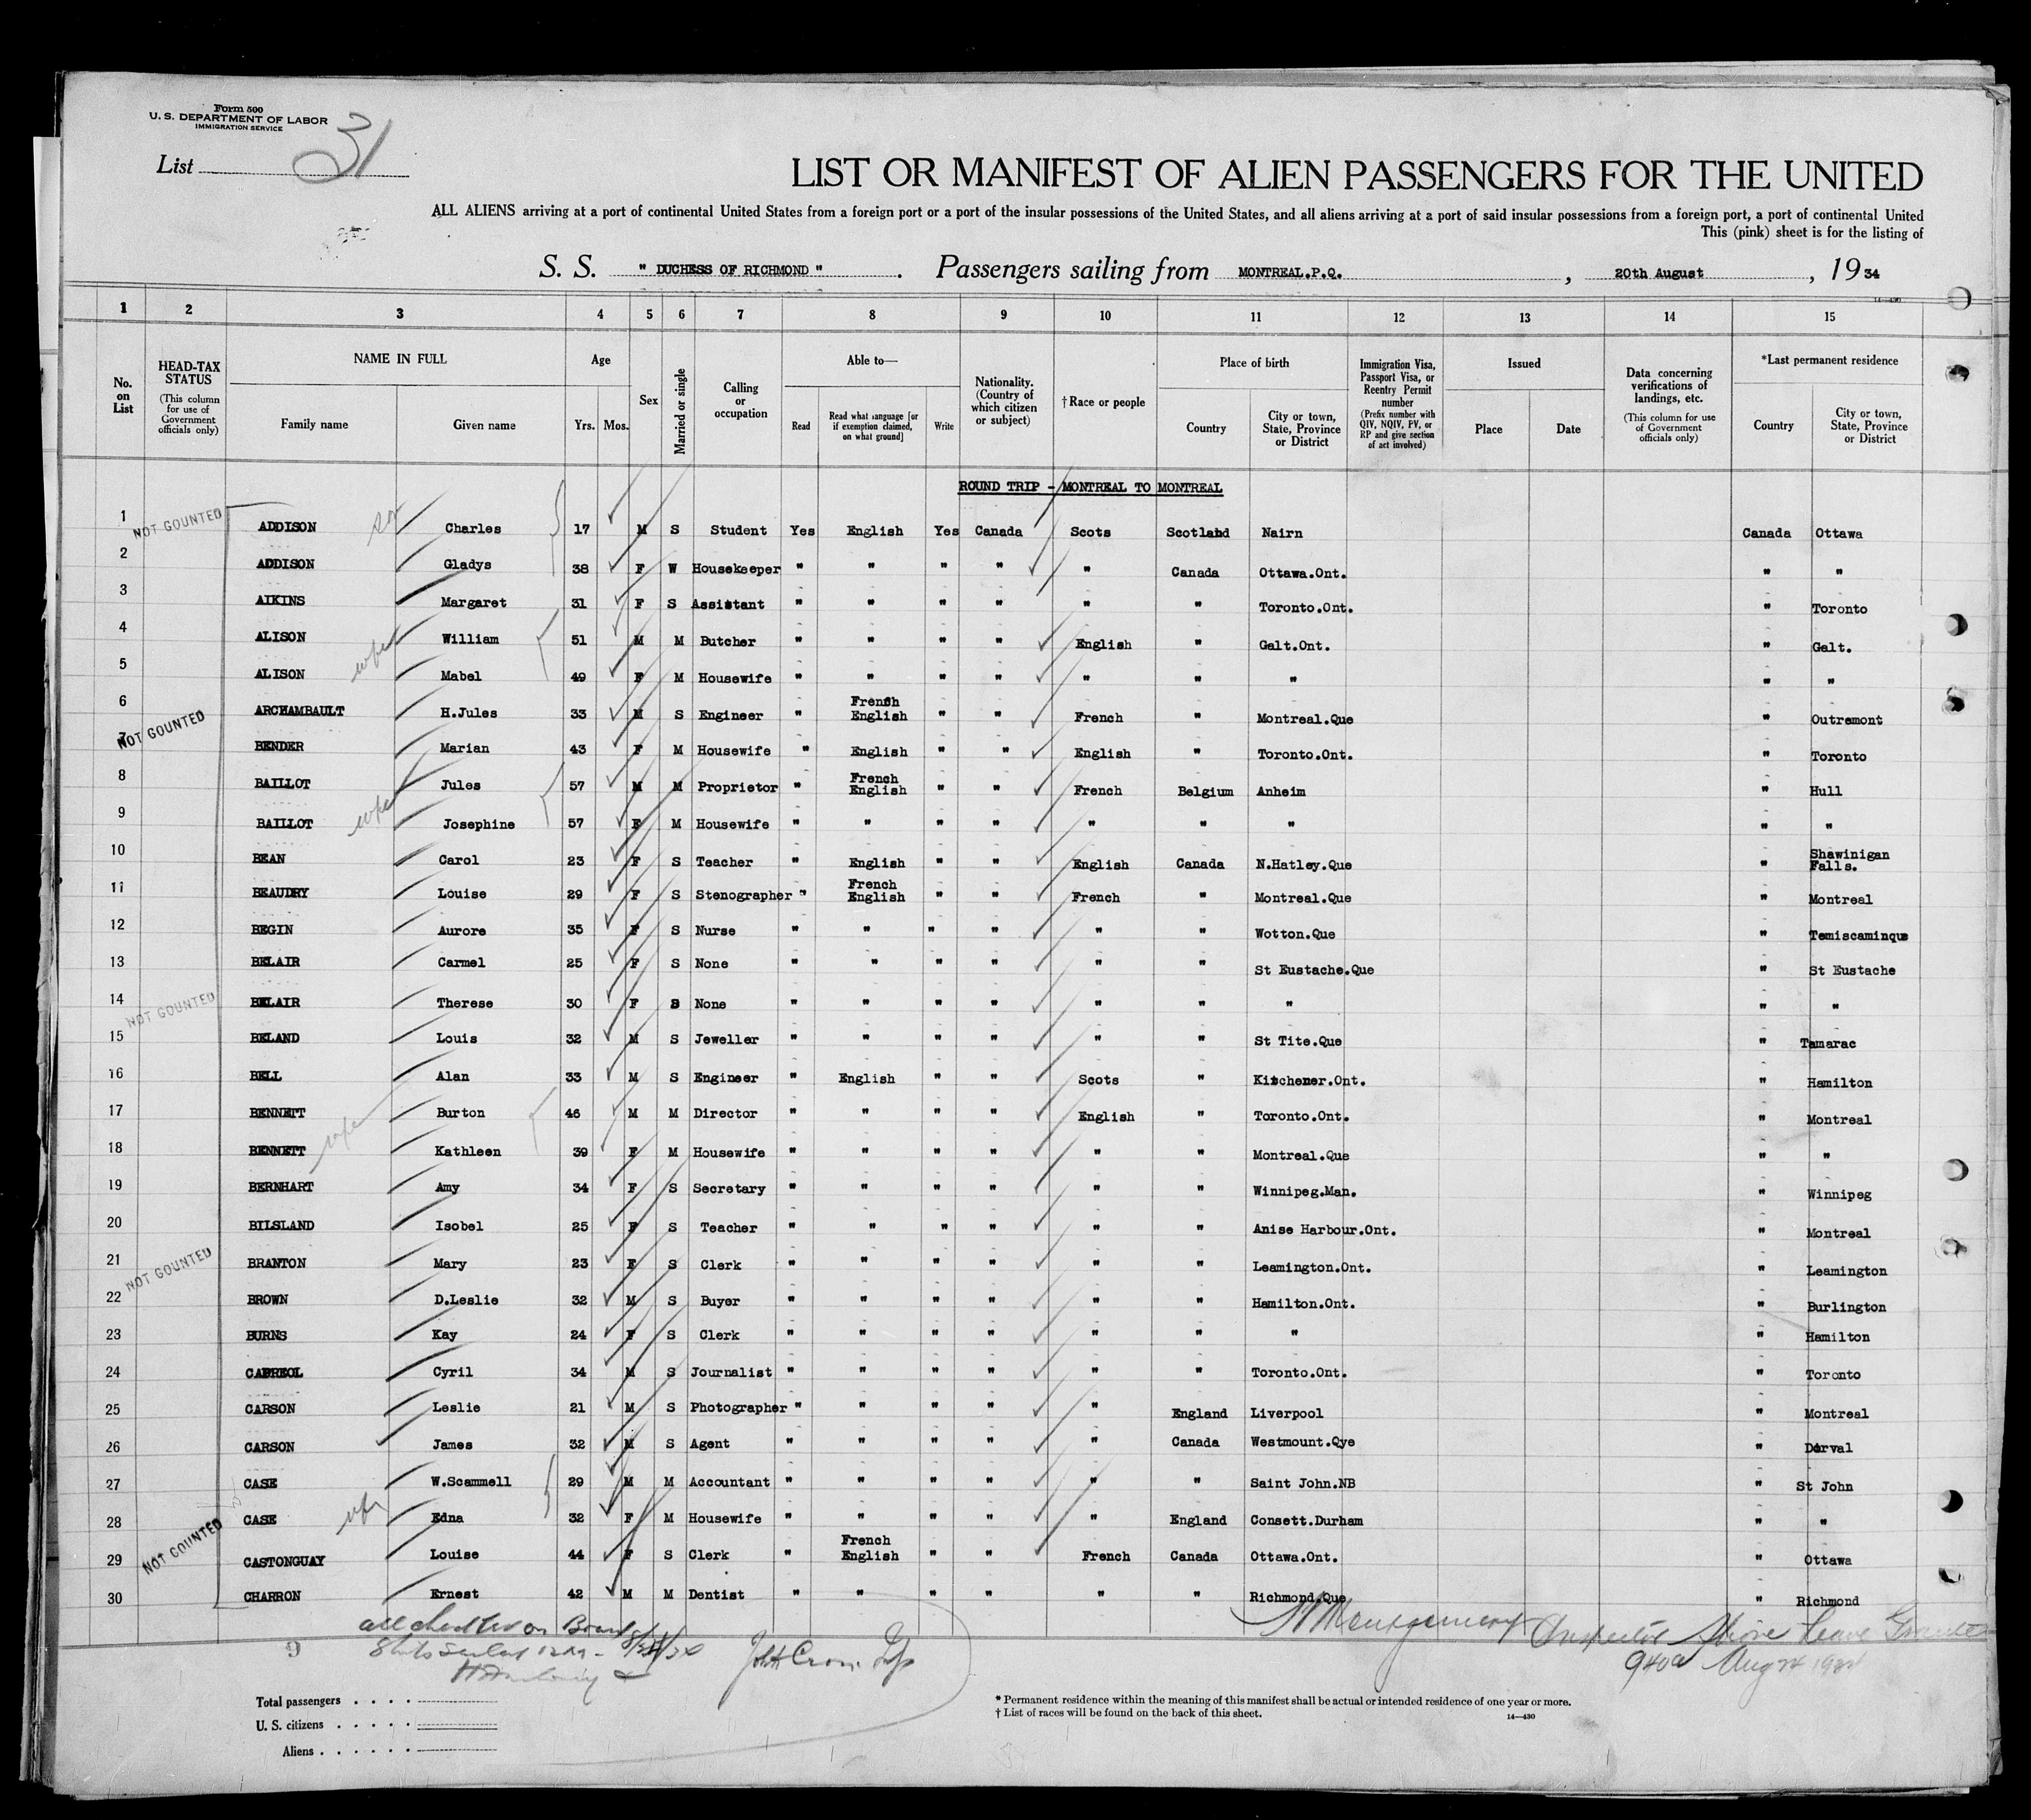 Form 500
U. S. DEPARTMENT OF LABOR
IMMIGRATION SERVICE
List 31
LIST OR MANIFEST OF ALIEN PASSENGERS FOR THE UNITED
ALL ALIENS arriving at a port of continental United States from a foreign port or a port of the insular possessions of the United States, and all aliens arriving at a port of said insular possessions from a foreign port, a port of continental United
This (pink) sheet is for the listing of
S. S. " DUCHESS OF RICHMOND " . Passengers sailing from MONTREAL.P.Q. , 20th August , 19 34
14—430
1 2 3 4 5 6 7 8 9 10 11 12 13 14 15
No. on List
HEAD-TAX STATUS (This column for use of Government officials only)
NAME IN FULL Family name Given name
Age Yrs. Mos.
Sex
Married or single
Calling or occupation
Able to— Read Read what language [or if exemption claimed, on what ground] Write
Nationality. (Country of which citizen or subject)
† Race or people
Place of birth Country City or town, State, Province or District
Immigration Visa, Passport Visa, or Reentry Permit number (Prefix number with QIV, NQIV, PV, or RP and give section of act involved)
Issued Place Date
Data concerning verifications of landings, etc. (This column for use of Government officials only)
*Last permanent residence Country City or town, State, Province or District
ROUND TRIP - MONTREAL TO MONTREAL
1 NOT COUNTED ADDISON son Charles 17 M S Student Yes English Yes Canada Scots Scotland Nairn Canada Ottawa
2 ADDISON Gladys 38 F W Housekeeper " " " " " Canada Ottawa.Ont. " "
3 AIKINS Margaret 31 F S Assistant " " " " " " Toronto.Ont. " Toronto
4 ALISON William 51 M M Butcher " " " " English " Galt.Ont. " Galt.
5 ALISON wife Mabel 49 F M Housewife " " " " " " " " "
6 ARCHAMBAULT H.Jules 33 M S Engineer " French English " " French " Montreal.Que " Outremont
7 NOT COUNTED BENDER Marian 43 F M Housewife " English " " English " Toronto.Ont. " Toronto
8 BAILLOT Jules 57 M M Proprietor " French English " " French Belgium Anheim " Hull
9 BAILLOT wife Josephine 57 F M Housewife " " " " " " " " "
10 BEAN Carol 23 F S Teacher " English " " English Canada N.Hatley.Que " Shawinigan Falls.
11 BEAUDRY Louise 29 F S Stenographer " French English " " French " Montreal.Que " Montreal
12 BEGIN Aurore 35 F S Nurse " " " " " " Wotton.Que " Temiscaminque
13 BELAIR Carmel 25 F S None " " " " " " St Eustache.Que " St Eustache
14 NOT COUNTED BELAIR Therese 30 F S None " " " " " " " " "
15 BELAND Louis 32 M S Jeweller " " " " " " St Tite.Que " Tamarac
16 BELL Alan 33 M S Engineer " English " " Scots " Kitchener.Ont. " Hamilton
17 BENNETT Burton 46 M M Director " " " " English " Toronto.Ont. " Montreal
18 BENNETT wife Kathleen 39 F M Housewife " " " " " " Montreal.Que " "
19 BERNHART Amy 34 F S Secretary " " " " " " Winnipeg.Man. " Winnipeg
20 BILSLAND Isobel 25 F S Teacher " " " " " " Anise Harbour.Ont. " Montreal
21 NOT COUNTED BRANTON Mary 23 F S Clerk " " " " " " Leamington.Ont. " Leamington
22 BROWN D.Leslie 32 M S Buyer " " " " " " Hamilton.Ont. " Burlington
23 BURNS Kay 24 F S Clerk " " " " " " " " Hamilton
24 CABREOL Cyril 34 M S Journalist " " " " " " Toronto.Ont. " Toronto
25 CARSON Leslie 21 M S Photographer " " " " " England Liverpool " Montreal
26 CARSON James 32 M S Agent " " " " " Canada Westmount.Qye " Dorval
27 CASE W.Scammell 29 M M Accountant " " " " " " Saint John.NB " St John
28 CASE wife Edna 32 F M Housewife " " " " " England Consett.Durham " "
29 NOT COUNTED CASTONGUAY Louise 44 F S Clerk " French English " " French Canada Ottawa.Ont. " Ottawa
30 CHARRON Ernest 42 M M Dentist " " " " " " Richmond.Que " Richmond
all checked on Board
9
Montgomery Inspector Shore leave Granted
940a Aug 24 1934
Total passengers . . . .
U. S. citizens . . . . .
Aliens . . . . . .
* Permanent residence within the meaning of this manifest shall be actual or intended residence of one year or more.
† List of races will be found on the back of this sheet.
14—430